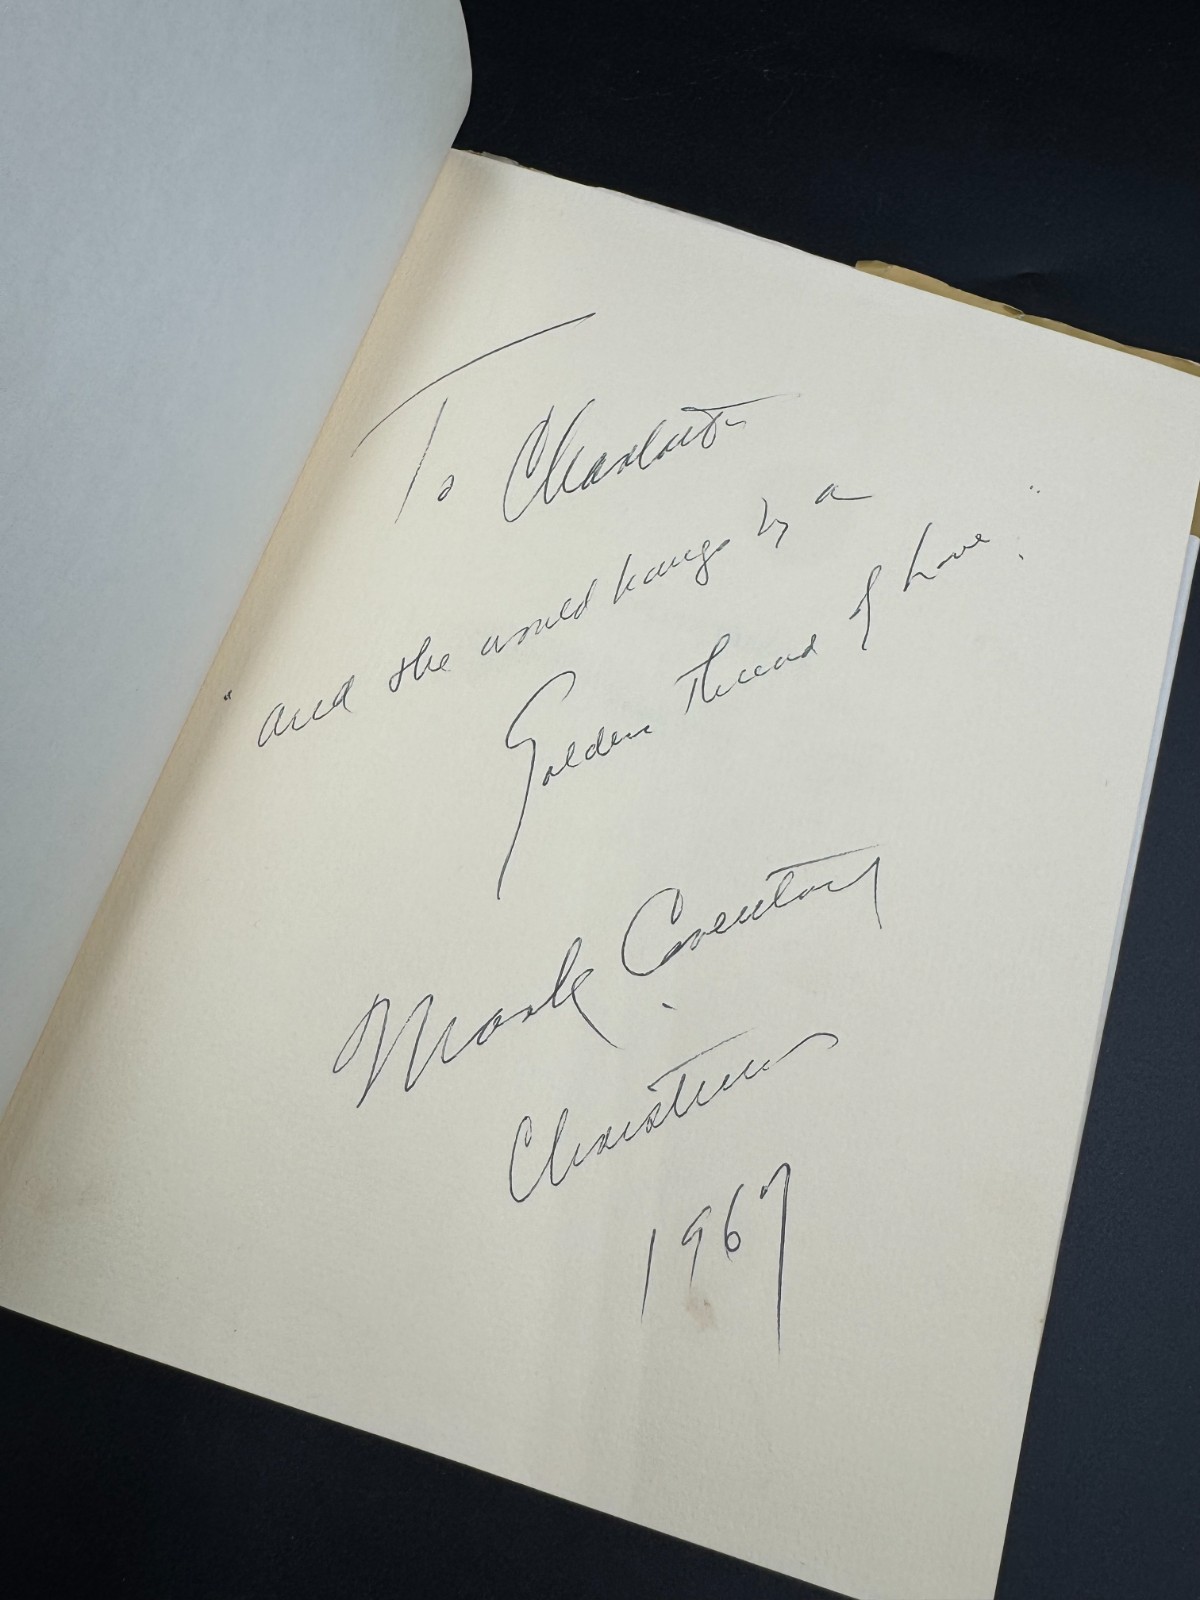 To Charlotte
"and the world hangs by a
Golden Thread of Love."
Mark Coventry
Christmas
1967